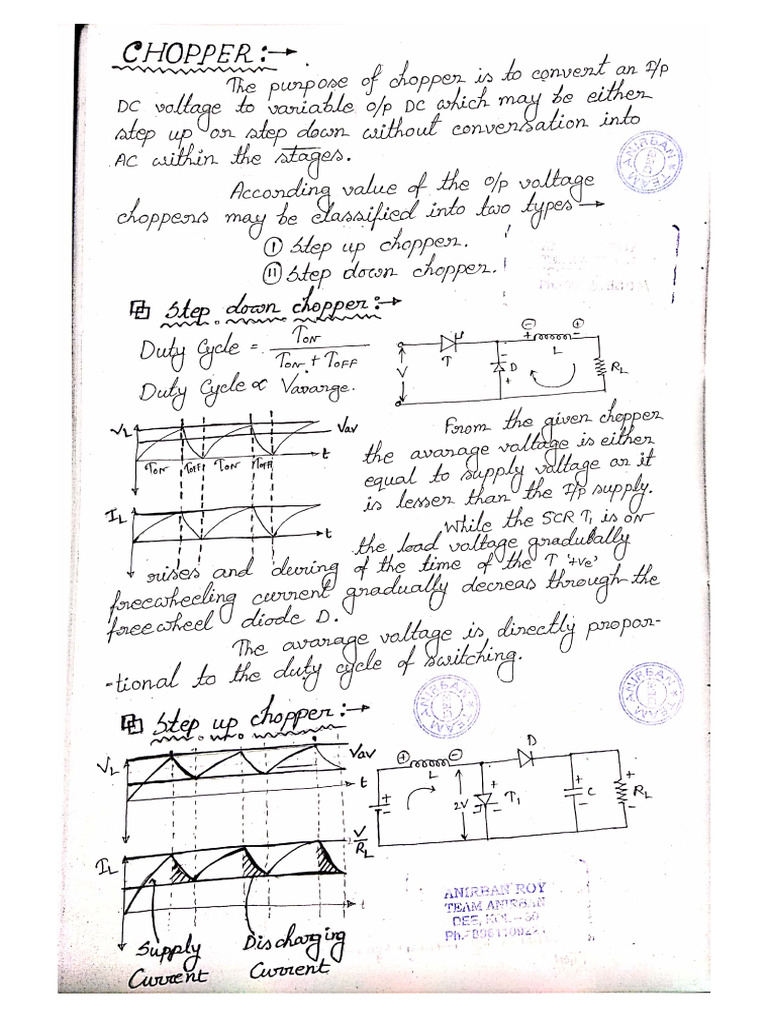 CHOPPER:→
The purpose of chopper is to convert an I/p
DC voltage to variable o/p DC which may be either
step up or step down without conversation into
AC within the stages.
According value of the o/p voltage
choppers may be classified into two types→
I step up chopper.
II step down chopper.
TEAM ANIRBAN
Step down chopper:→
Duty Cycle = TON / TON + TOFF
Duty Cycle ∝ Vavarge.
V
T
D
L
RL
VL
Vav
t
TON TOFF TON TOFF
IL
t
From the given chopper
the avarage voltage is either
equal to supply voltage or it
is lesser than the I/p supply.
While the SCR T1 is ON
the load voltage gradubally
rises and during of the time of the T '+ve'
freewheeling current gradually decreas through the
freewheel diode D.
The avarage voltage is directly propor-
-tional to the duty cycle of switching.
TEAM ANIRBAN
TEAM ANIRBAN
Step up chopper:→
VL
Vav
t
L
2V
T1
D
C
RL
IL
V/RL
t
Supply
Current
Discharging
Current
ANIRBAN ROY
TEAM ANIRBAN